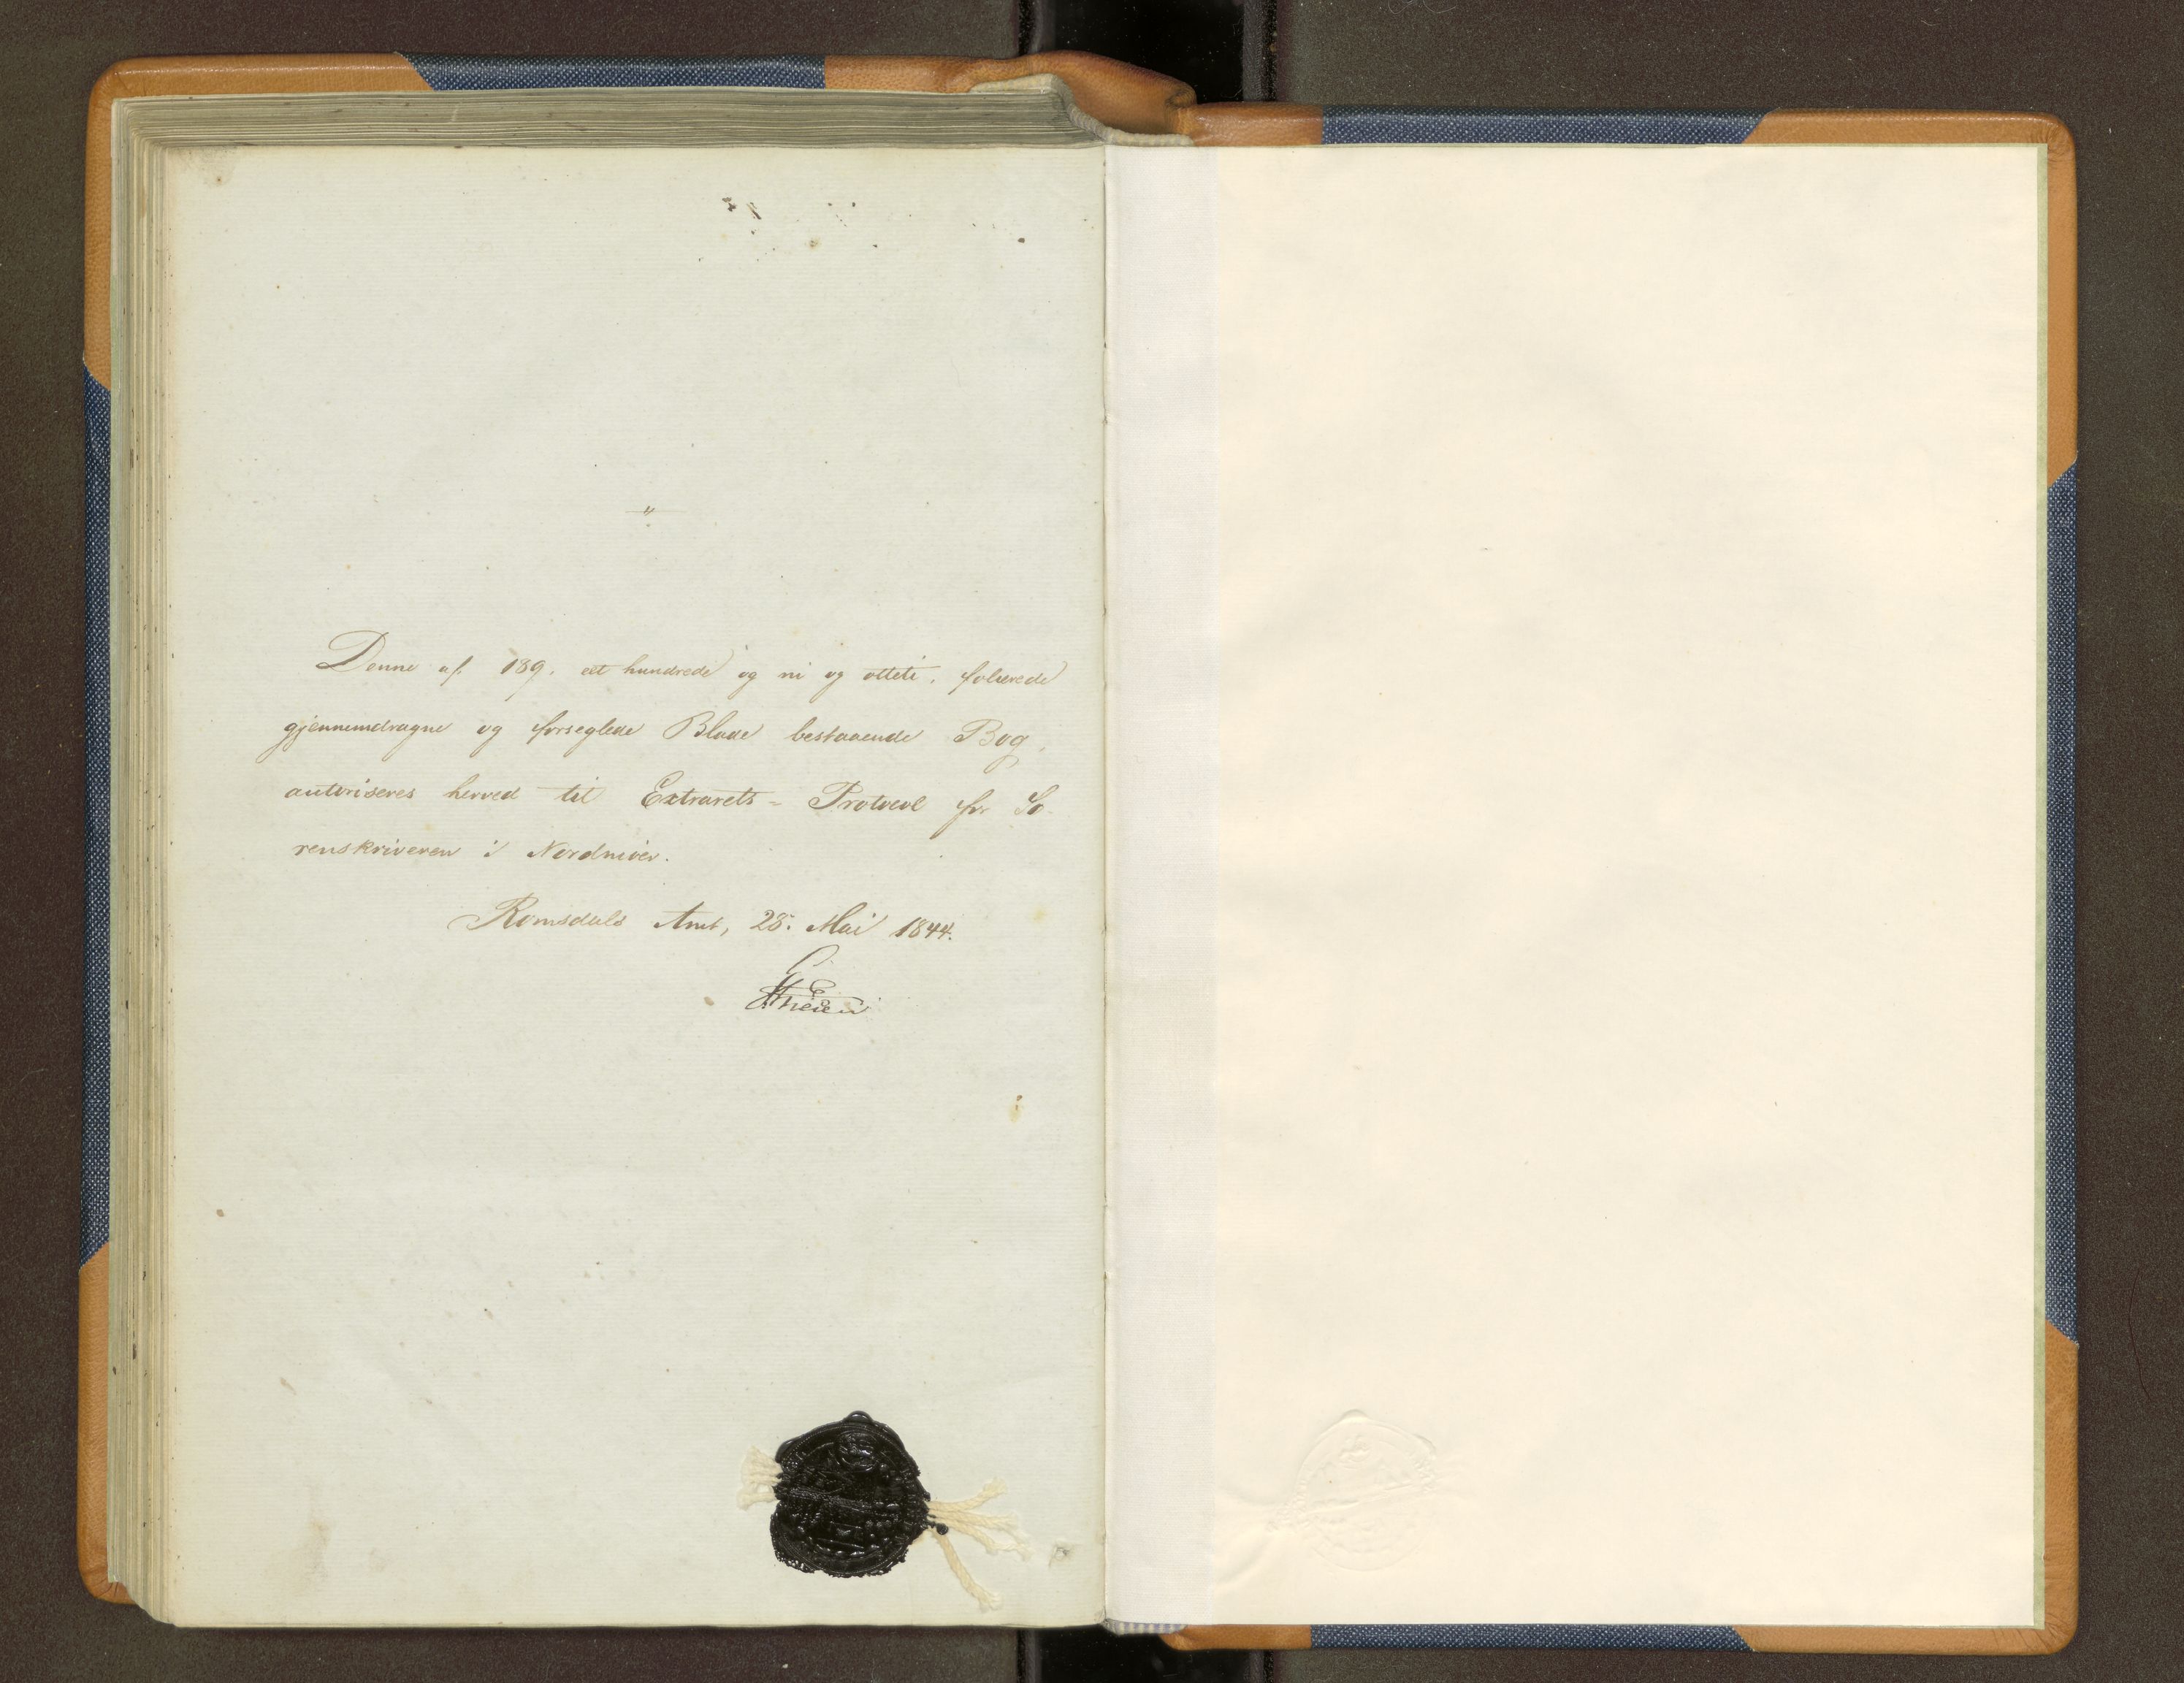 Denne af 189. et hundrede og ni og otteti, folierede
gjennemdragne og forseglede Blade bestaaende Bog,
autoriseres herved til Extrarets-Protocol for So-
renskriveren i Nordmøer.
Romsdals Amt, 28. Mai 1844.